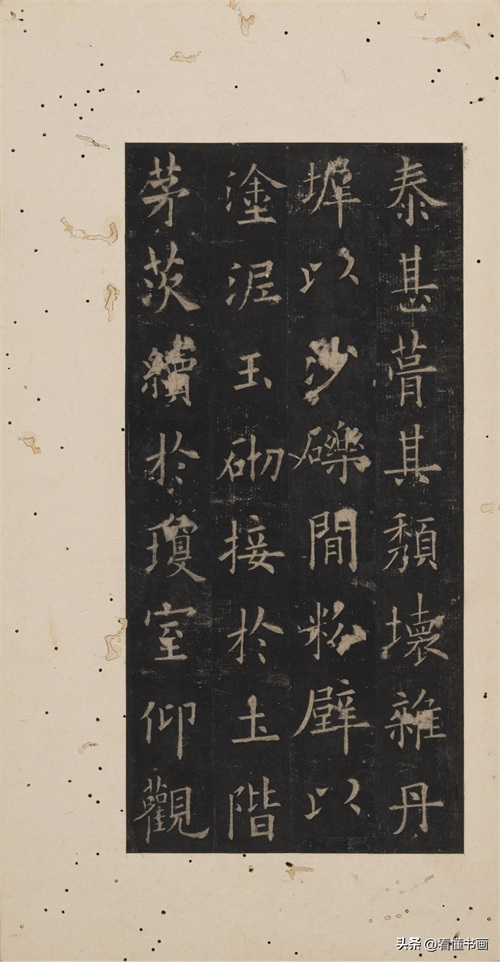 泰甚葺其頹壞雜丹
墀以沙礫間粉壁以
塗泥玉砌接於土階
茅茨續於瓊室仰觀
头条 @看懂书画